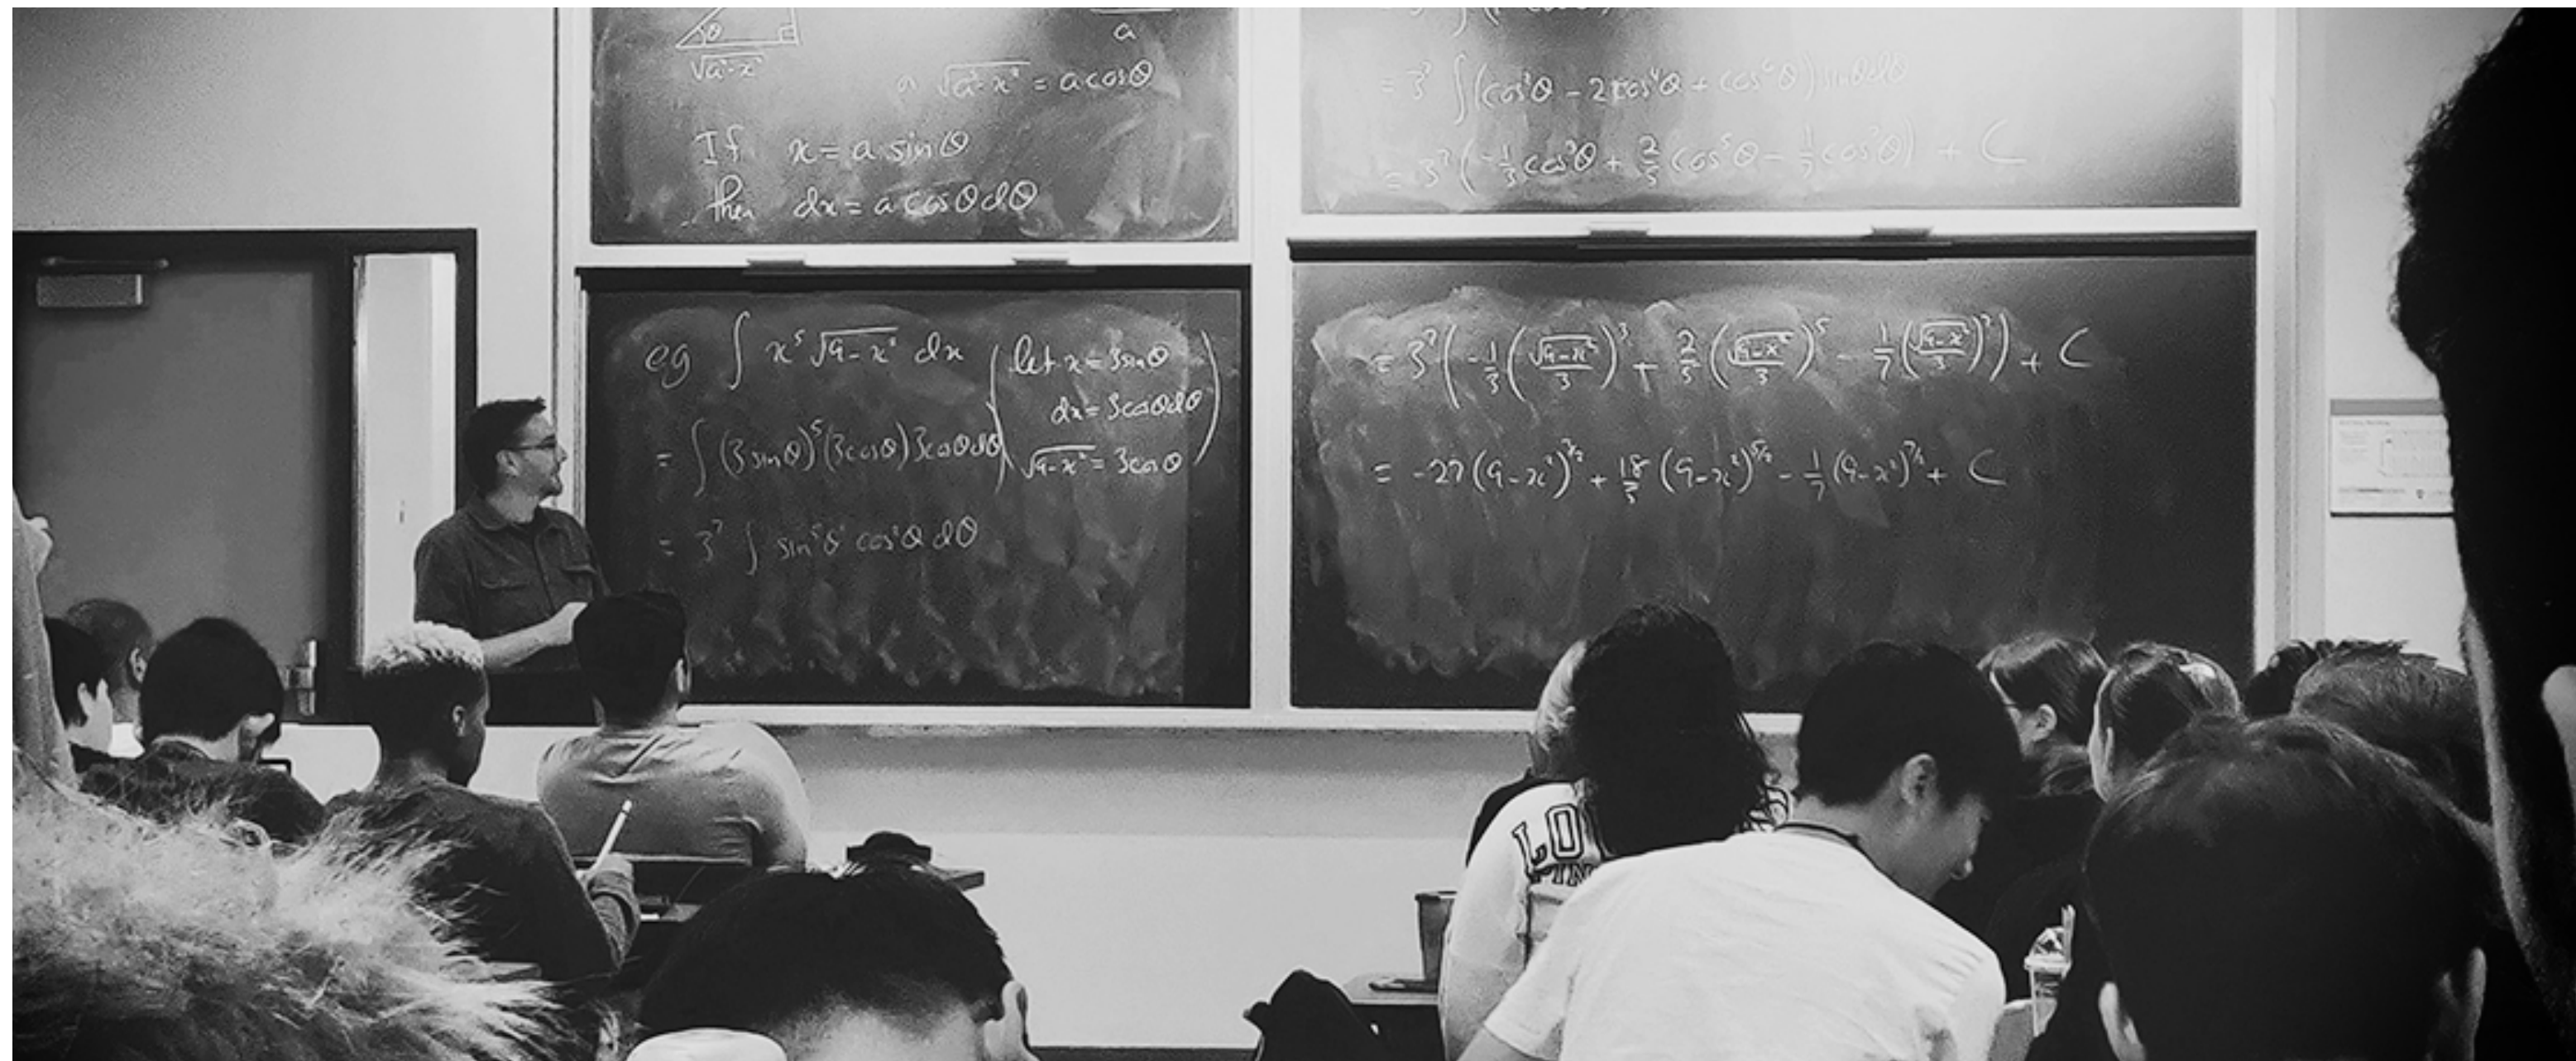 θ
√a²-x²
a
√a²-x² = a cosθ
If x = a sinθ
then dx = a cosθ dθ
eg ∫ x⁵ √9-x² dx (let x = 3sinθ
dx = 3cosθdθ
= ∫ (3 sinθ)⁵ (3cosθ) 3cosθdθ √9-x² = 3cosθ)
= 3⁷ ∫ sin⁵θ cos²θ dθ
= 3⁷ ∫ (cos²θ - 2cos⁴θ + cos⁶θ) sinθdθ
= 3⁷ (-1/3 cos³θ + 2/5 cos⁵θ - 1/7 cos⁷θ) + C
= 3⁷ (-1/3 (√9-x²/3)³ + 2/5 (√9-x²/3)⁵ - 1/7 (√9-x²/3)⁷) + C
= -27 (9-x²)^3/2 + 18/5 (9-x²)^5/2 - 1/7 (9-x²)^7/2 + C
LO